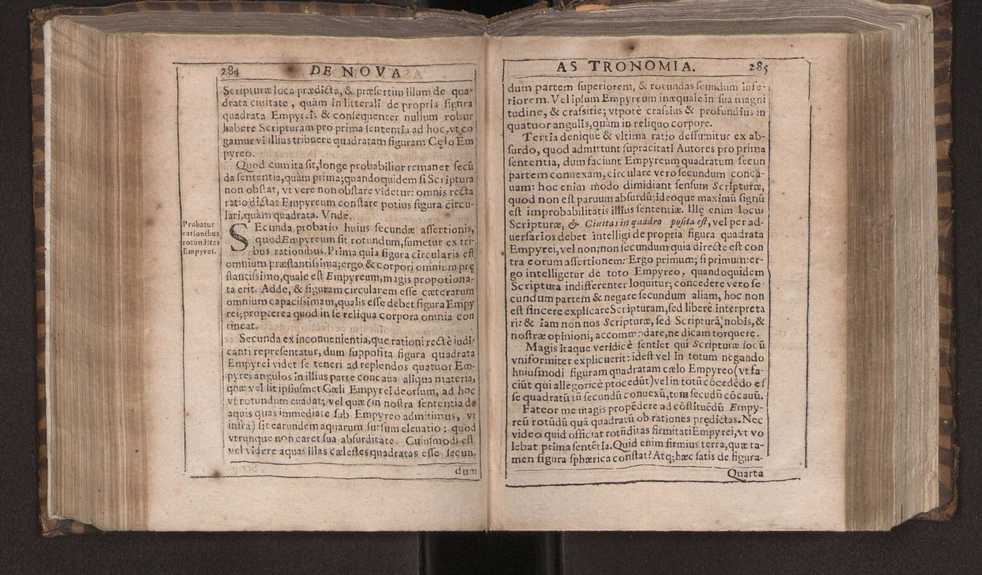 284 DE NOVA
Scripturæ loca prædicta, & præsertim illum de qua-
drata ciuitate, quàm in litterali de propria figura
quadrata Empyrei; & consequenter nullum robur
habere Scripturam pro prima sententia ad hoc, vt co
gamur vi illius tribuere quadratam figuram Cęlo Em
pyreo.
Quod cum ita sit, longe probabilior remanet secũ
da sententia, quàm prima; quandoquidem si Scriptura
non obstat, vt vere non obstare videtur: omnis recta
ratio dictat Empyreum constare potius figura circu-
lari, quàm quadrata. Vnde.
Probatur
rationibus
rotunditas
Empyrei.
SEcunda probatio huius secundæ assertionis,
quod Empyreum sit rotundum, sumetur ex tri
bus rationibus. Prima quia figura circularis est
omnium præstantissima; ergo & corpori omnium prę
stantissimo, quale est Empyreum, magis propotiona-
ta erit. Adde, & figuram circularem esse cæterarum
omnium capacissimam, qualis esse debet figura Empy
rei; propterea quod in se reliqua corpora omnia con
tineat.
Secunda ex inconuenientia, que rationi rectè iudi
canti repræsentatur, dum supposita figura quadrata
Empyrei videt se teneri ad replendos quatuor Em-
pyrei angulos in illius parte concaua aliqua materia,
quæ vel sit ipsiusmet Cæli Empyrei deorsum, ad hoc
vt rotundum euadat; vel quæ (in nostra sententia de
aquis quas immediate sub Empyreo admitimus, vt
infra) sit earundem aquarum sursum eleuatio: quod
vtrunque non caret sua absurditate. Cuiusmodi est
vel videre aquas illas cælestes quadratas esse secun-
dum
AS TRONOMIA. 285
dum partem superiorem, & rotundas secundum infe-
riorem. Vel ipsum Empyreum inæquale in sua magni
tudine, & crassitie; vtpote crassius & profundius in
quatuor angulis, quàm in reliquo corpore.
Tertia denique & vltima ratio dessumitur ex ab-
surdo, quod admittunt supracitati Autores pro prima
sententia, dum faciunt Empyreum quadratum secun
partem conuexam, circulare vero secundum conca-
uam: hoc enim modo dimidiant sensum Scripturæ,
quod non est paruum absurdũ; ideoque maximũ signũ
est improbabilitatis illius sententiæ. Ille enim locus
Scripturæ, & Ciuitas in quadro posita est, vel per ad-
uersarios debet intelligi de propria figura quadrata
Empyrei, vel non; non secundum quia directe est con
tra eorum assertionem: Ergo primum; si primum: er-
go intelligetur de toto Empyreo, quandoquidem
Scriptura indifferenter loquitur; concedere vero se-
cundum partem & negare secundum aliam, hoc non
est sincere explicare Scripturam, sed libere interpreta
ri: & iam non nos Scripturæ, sed Scripturã nobis, &
nostræ opinioni, accommodare, ne dicam torquere.
Magis itaque veridicè sentiet qui Scripturæ locũ
vniformiter explicuerit: id est vel in totum negando
huiusmodi figuram quadratam cælo Empyreo (vt fa-
ciũt qui allegoricè procedũt) vel in totũ cõcedẽdo es
se quadratũ tũ secundũ conuexũ, tum secundũ cõcauũ.
Fateor me magis propẽdere ad cõstituẽdũ Empy-
reũ rotũdũ quã quadratũ ob rationes prędictas. Nec
video quid officiat rotũditas firmitati Empyrei, vt vo
lebat prima sentẽtia. Quid enim firmius terra, quæ ta-
men figura sphærica constat? Atq; hæc satis de figura-
Quarta